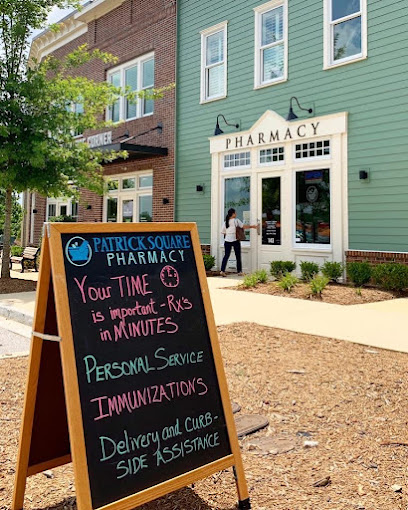 PHARMACY
CORNER
PATRICK SQUARE
PHARMACY
YOUR TIME
is important - Rx's
in MINUTES
PERSONAL SERVICE
IMMUNIZATIONS
Delivery and CURB-
SIDE ASSISTANCE